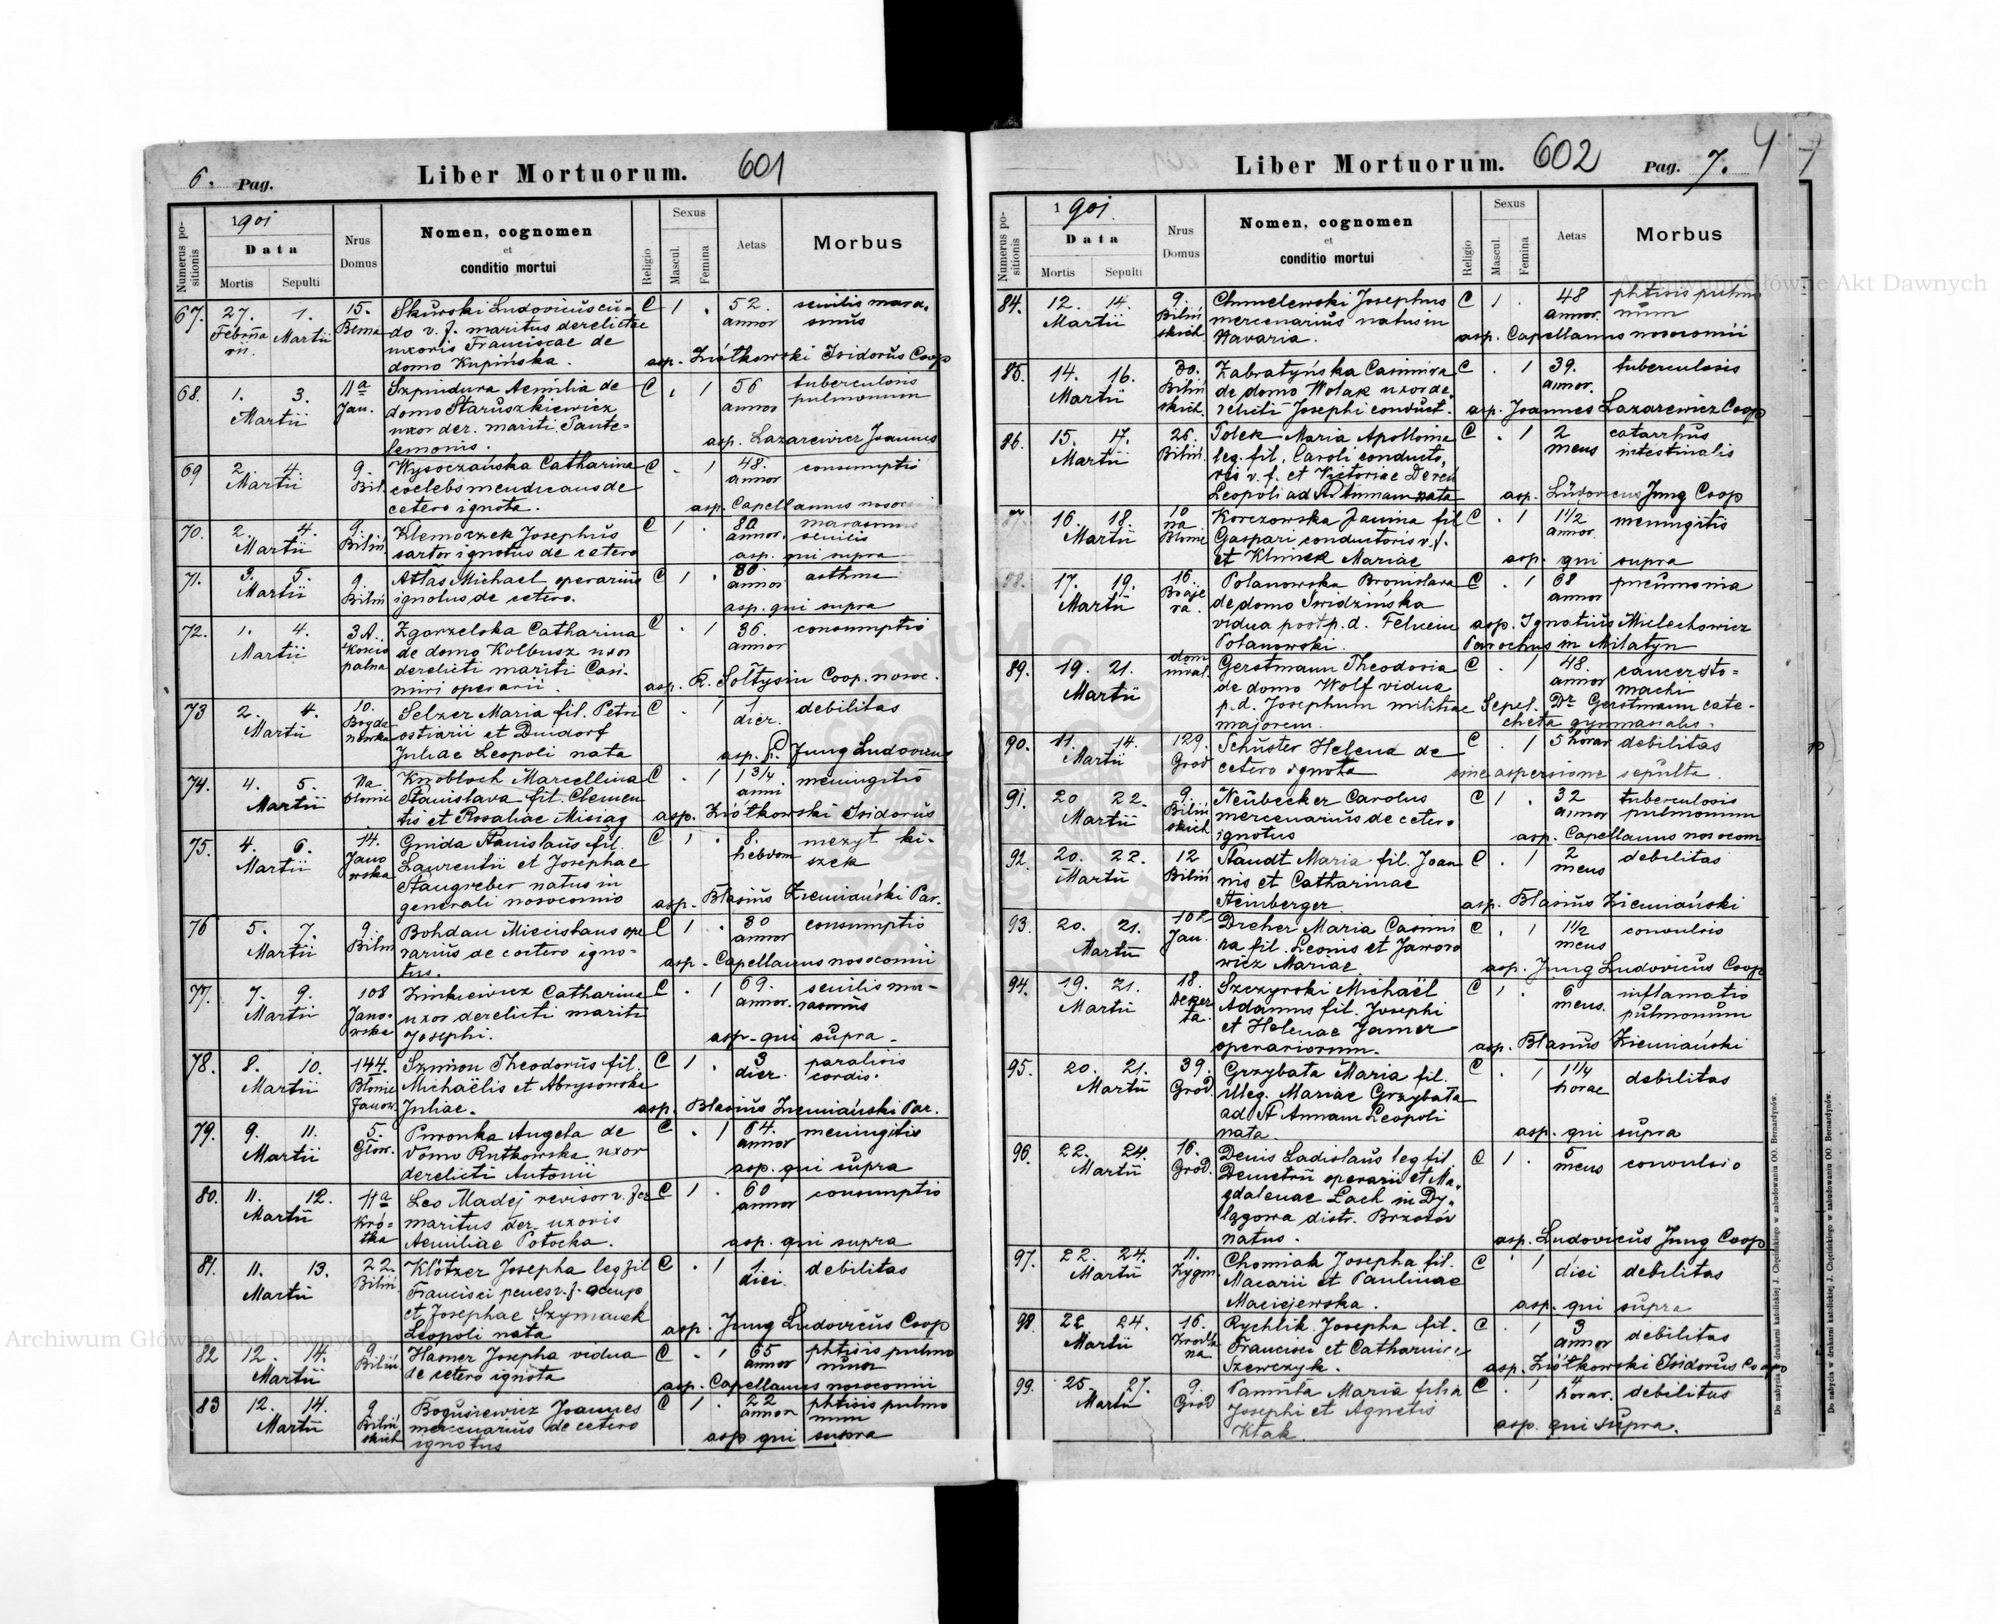 6. Pag. Liber Mortuorum. 601
Numerus positionis
1901
Data
Mortis Sepulti
Nrus Domus
Nomen, cognomen
et
conditio mortui
Religio
Sexus
Mascul. Femina
Aetas
Morbus
67. 27. Februarii 1. Martii 15. Skurski Ludovicus cu- C 1 . 52. annor senilis mara-
do v. f. maritus derelictae smus
uxoris Franciscae de
domo Kupińska. asp. Ziółkowski Isidorus Coop
68. 1. 3. Martii 11a Jan. Szpindura Aemilia de C . 1 56 annor tuberculosis
domo Staruszkiewicz pulmonum
uxor der. mariti Pante-
lemonis. asp. Lazarewicz Joannes
69 2. 4. Martii 9. Bil. Wysoczańska Catharina C . 1 48. annor consumptio
coelebs mendicans de
cetero ignota. asp. Capellanus
70. 2. 4. Martii 9. Biliń Klemoczek Josephus C 1 . 80 annor. marasmus
sartor ignotus de cetero senilis
asp. qui supra
71. 3. 5. Martii 9. Biliń Atlas Michael operarius C 1 . 80. annor asthma
ignotus de cetero. asp. qui supra
72. 1. 4. Martii 3A. Zgorzelska Catharina C . 1 36. annor consumptio
de domo Kolbusz uxor
derelicti mariti Casi-
miri operarii. asp. R. Sołtysin Coop. nosoc.
73 2. 4. Martii 10. Bogdanówka Selzer Maria fil. Petri C . 1 1 dier. debilitas
ostiarii et Dundorf
Juliae Leopoli nata asp. Jung Ludovicus
74. 4. 5. Martii Na błonie Knobloch Marcellina C . 1 1 3/4 anni meningitis
Stanislava fil. Clemen
tis et Rosaliae Misiag asp. Ziółkowski Isidorus
75. 4. 6. Martii 14. Janowska Gnida Stanislaus fil. C 1 . 8. hebdom niezyt ki-
Laurentii et Josephae szek
Staugreber natus in
generali nosocomio asp. Blasius Ziemiański Par.
76 5. 7. Martii 9. Biliń Bohdan Miecislaus ope C 1 . 30 annor consumptio
rarius de coetero igno-
tus. asp. Capellanus nosocomii
77. 7. 9. Martii 108 Janowska Zinkiewicz Catharina C . 1 69. annor. senilis ma-
uxor derelicti mariti rasmus
Josephi. asp. qui supra.
78. 8. 10. Martii 144. Błonie Janow. Szmion Theodorus fil. C 1 . 3 dier. paralisis
Michaëlis et Abrysowska cordis.
Juliae. asp. Blasius Ziemiański Par.
79. 9. 11. Martii 5. Głow. Pwronka Angela de C . 1 64. annor meningitis
domo Rutkowska uxor
derelicti Antonii asp. qui supra
80. 11. 12. Martii 11a Krótka Leo Madej revisor v. fer C 1 . 60 annor consumptio
maritus der. uxoris
Aemiliae Potocka. asp. qui supra
81. 11. 13. Martii 22. Biliń. Klötzer Josepha leg fil C . 1 1. diei. debilitas
Francisci penes v. f. occup
et Josephae Szymanek
Leopoli nata asp. Jung Ludovicus Coop
82 12. 14. Martii 9 Biliń. Hamer Josepha vidua C . 1 65 annor phtisis pulmo
de cetero ignota num
asp. Capellanus nosocomii
83 12. 14. Martii 9 Biliń skich Bogusiewicz Joannes C 1 . 22 annor phtisis pulmo
mercenarius de cetero num
ignotus asp qui supra
Liber Mortuorum. 602 Pag. 7.
Numerus positionis
1901.
Data
Mortis Sepulti
Nrus Domus
Nomen, cognomen
et
conditio mortui
Religio
Sexus
Mascul. Femina
Aetas
Morbus
84. 12. 14. Martii 9. Biliń skich Chmielewski Josephus C 1 . 48 annor. phtisis pulmo
mercenarius natus in num
Navaria. asp. Capellanus nosocomii
85. 14. 16. Martii 30. Biliń skich. Zabratyńska Casimira C . 1 39. annor. tuberculosis
de domo Wolak uxor de
relicti Josephi conduct. asp. Joannes Lazarewicz Coop
86. 15. 17. Martii 26. Biliń. Polek Maria Apollonia C . 1 2 mens catarrhus
leg. fil. Caroli conducto, intestinalis
ris v. f. et Victoriae Dereń
Leopoli ad St Annam nata asp. Ludovicus Jung Coop
87. 16. 18. Martii 10 na Błonie Korczowska Janina fil C . 1 1 1/2 annor. meningitis
Gaspari conductoris v. f.
et Klimek Mariae asp. qui supra
88. 17. 19. Martii 16. Polanowska Bronislava C . 1 68 annor pneumonia
de domo Swidzińska
vidua post p. d. Felicem asp. Ignatius Mielechowicz
Polanowski. Parochus in Milatyn
89. 19. 21. Martii Gerstmann Theodosia C . 1 48. annor cancer sto-
de domo Wolf vidua machi
p. d. Josephum militiae Sepel. Dr. Gerstmann cate-
majorem. cheta gymnasialis.
90. 11. 14. Martii 129. Grod Schuster Helena de C . 1 5 horar debilitas
cetero ignota sine aspersione sepulta.
91. 20 22. Martii 9. Biliń skich Neubecker Carolus C 1 . 32 annor tuberculosis
mercenarius de cetero pulmonum
ignotus asp. Capellanus nosocom
92. 20. 22. Martii 12 Biliń Staudt Maria fil. Joan C . 1 2 mens debilitas
nis et Catharinae
Steinberger. asp. Blasius Ziemiański
93. 20. 21. Martii Jan. Dreher Maria Casimi C . 1 1 1/2 mens convulsis
ra fil. Leonis et Jaworo
wicz Mariae. asp. Jung Ludovicus Coop
94. 19. 21. Martii 18. Szczyrski Michaël C 1 . 6 mens. inflamatio
Adamus fil. Josephi pulmonum
et Helenae Jamer
operariorum. asp. Blasius Ziemiański
95. 20. 21. Martii 39. Grod Grzybała Maria fil. C . 1 1 1/4 horae debilitas
illeg. Mariae Grzybała
ad St Annam Leopoli
nata. asp. qui supra
96. 22. 24. Martii 16. Grod. Denis Ladislaus leg fil. C 1 . 5 mens convulsio
Demetrii operarii et Ma,
gdalenae Lach in Dy,
lągowa distr. Brzozów
natus. asp. Ludovicus Jung Coop
97. 22. 24. Martii 11. Zygm Chomiak Josepha fil. C . 1 diei debilitas
Macarii et Paulinae
Maciejewska. asp. qui supra
98. 22 24. Martii 16. Rychlik Josepha fil. C . 1 3 annor debilitas
Francisci et Catharinae
Szewczyk. asp. Ziółkowski Isidorus Coop
99. 25. 27. Martii 9. Grod Pamuła Maria filia C . 1 4 horar. debilitas
Josephi et Agnetis
Ktak. asp. qui supra.
Do nabycia w drukarni katolickiej J. Chęcińskiego w zabudowaniu OO. Bernardynów.
Do nabycia w drukarni katolickiej J. Chęcińskiego w zabudowaniu OO. Bernardynów.
Archiwum Główne Akt Dawnych
Archiwum Główne Akt Dawnych